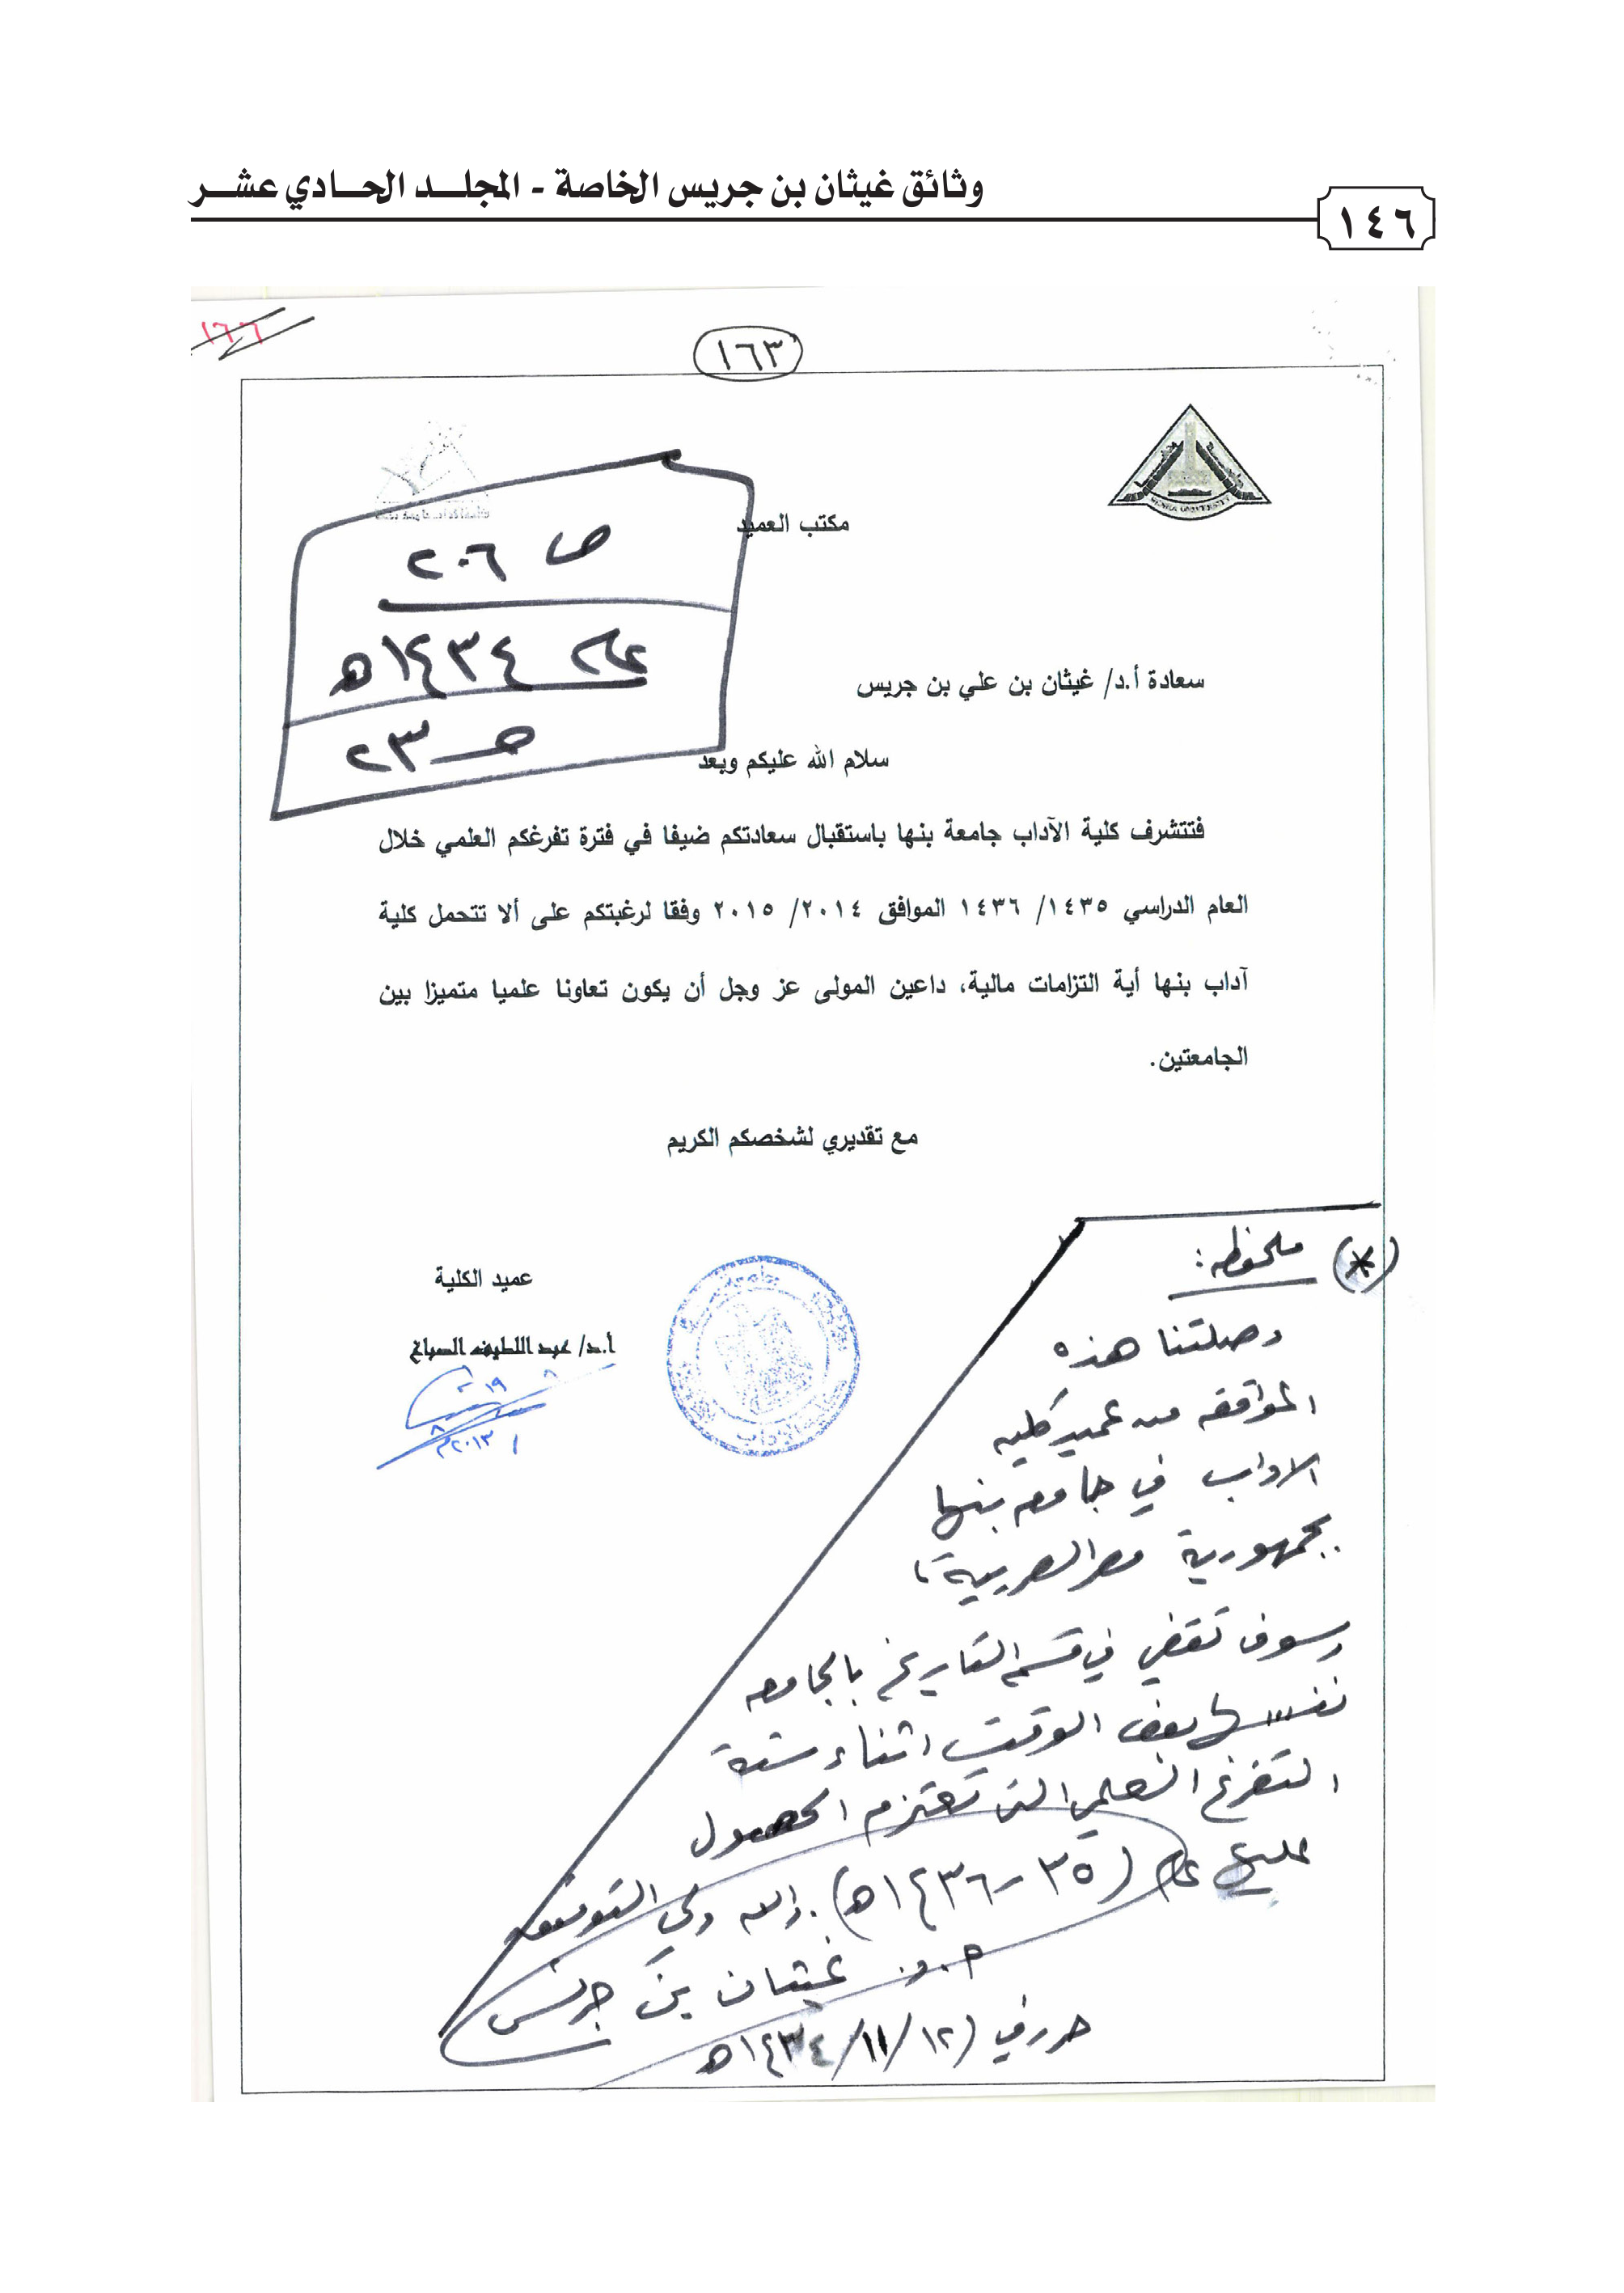 وثائق غيثان بن جريس الخاصة - المجلد الحادي عشر
١٤٦
١٦٣
BENHA UNIVERSITY
مكتب العميد
ص ٢٠٦
عام ١٤٣٤هـ
حـ ٢٣
سعادة أ.د/ غيثان بن علي بن جريس
سلام الله عليكم وبعد
فتتشرف كلية الآداب جامعة بنها باستقبال سعادتكم ضيفا في فترة تفرغكم العلمي خلال
العام الدراسي ١٤٣٥/ ١٤٣٦ الموافق ٢٠١٤/ ٢٠١٥ وفقا لرغبتكم على ألا تتحمل كلية
آداب بنها أية التزامات مالية، داعين المولى عز وجل أن يكون تعاونا علميا متميزا بين
الجامعتين.
مع تقديري لشخصكم الكريم
عميد الكلية
أ.د/ عبد اللطيف الصباغ
١٩
٨
٢٠١٣م
(*) ملحوظه :
وصلتنا هذه
الموافقه من عميد كليه
الاداب في جامعه بنها
بجمهورية مصر العربية،
وسوف نقضي في قسم التاريخ بالجامعه
نفسها بعض الوقت اثناء سنة
التفرغ العلمي التي نعتزم الحصول
عليها عام (٣٥-١٤٣٦هـ). والله ولي التوفيق
غيثان بن جريس
حرر في (١٢/ ١١/ ١٤٣٤هـ